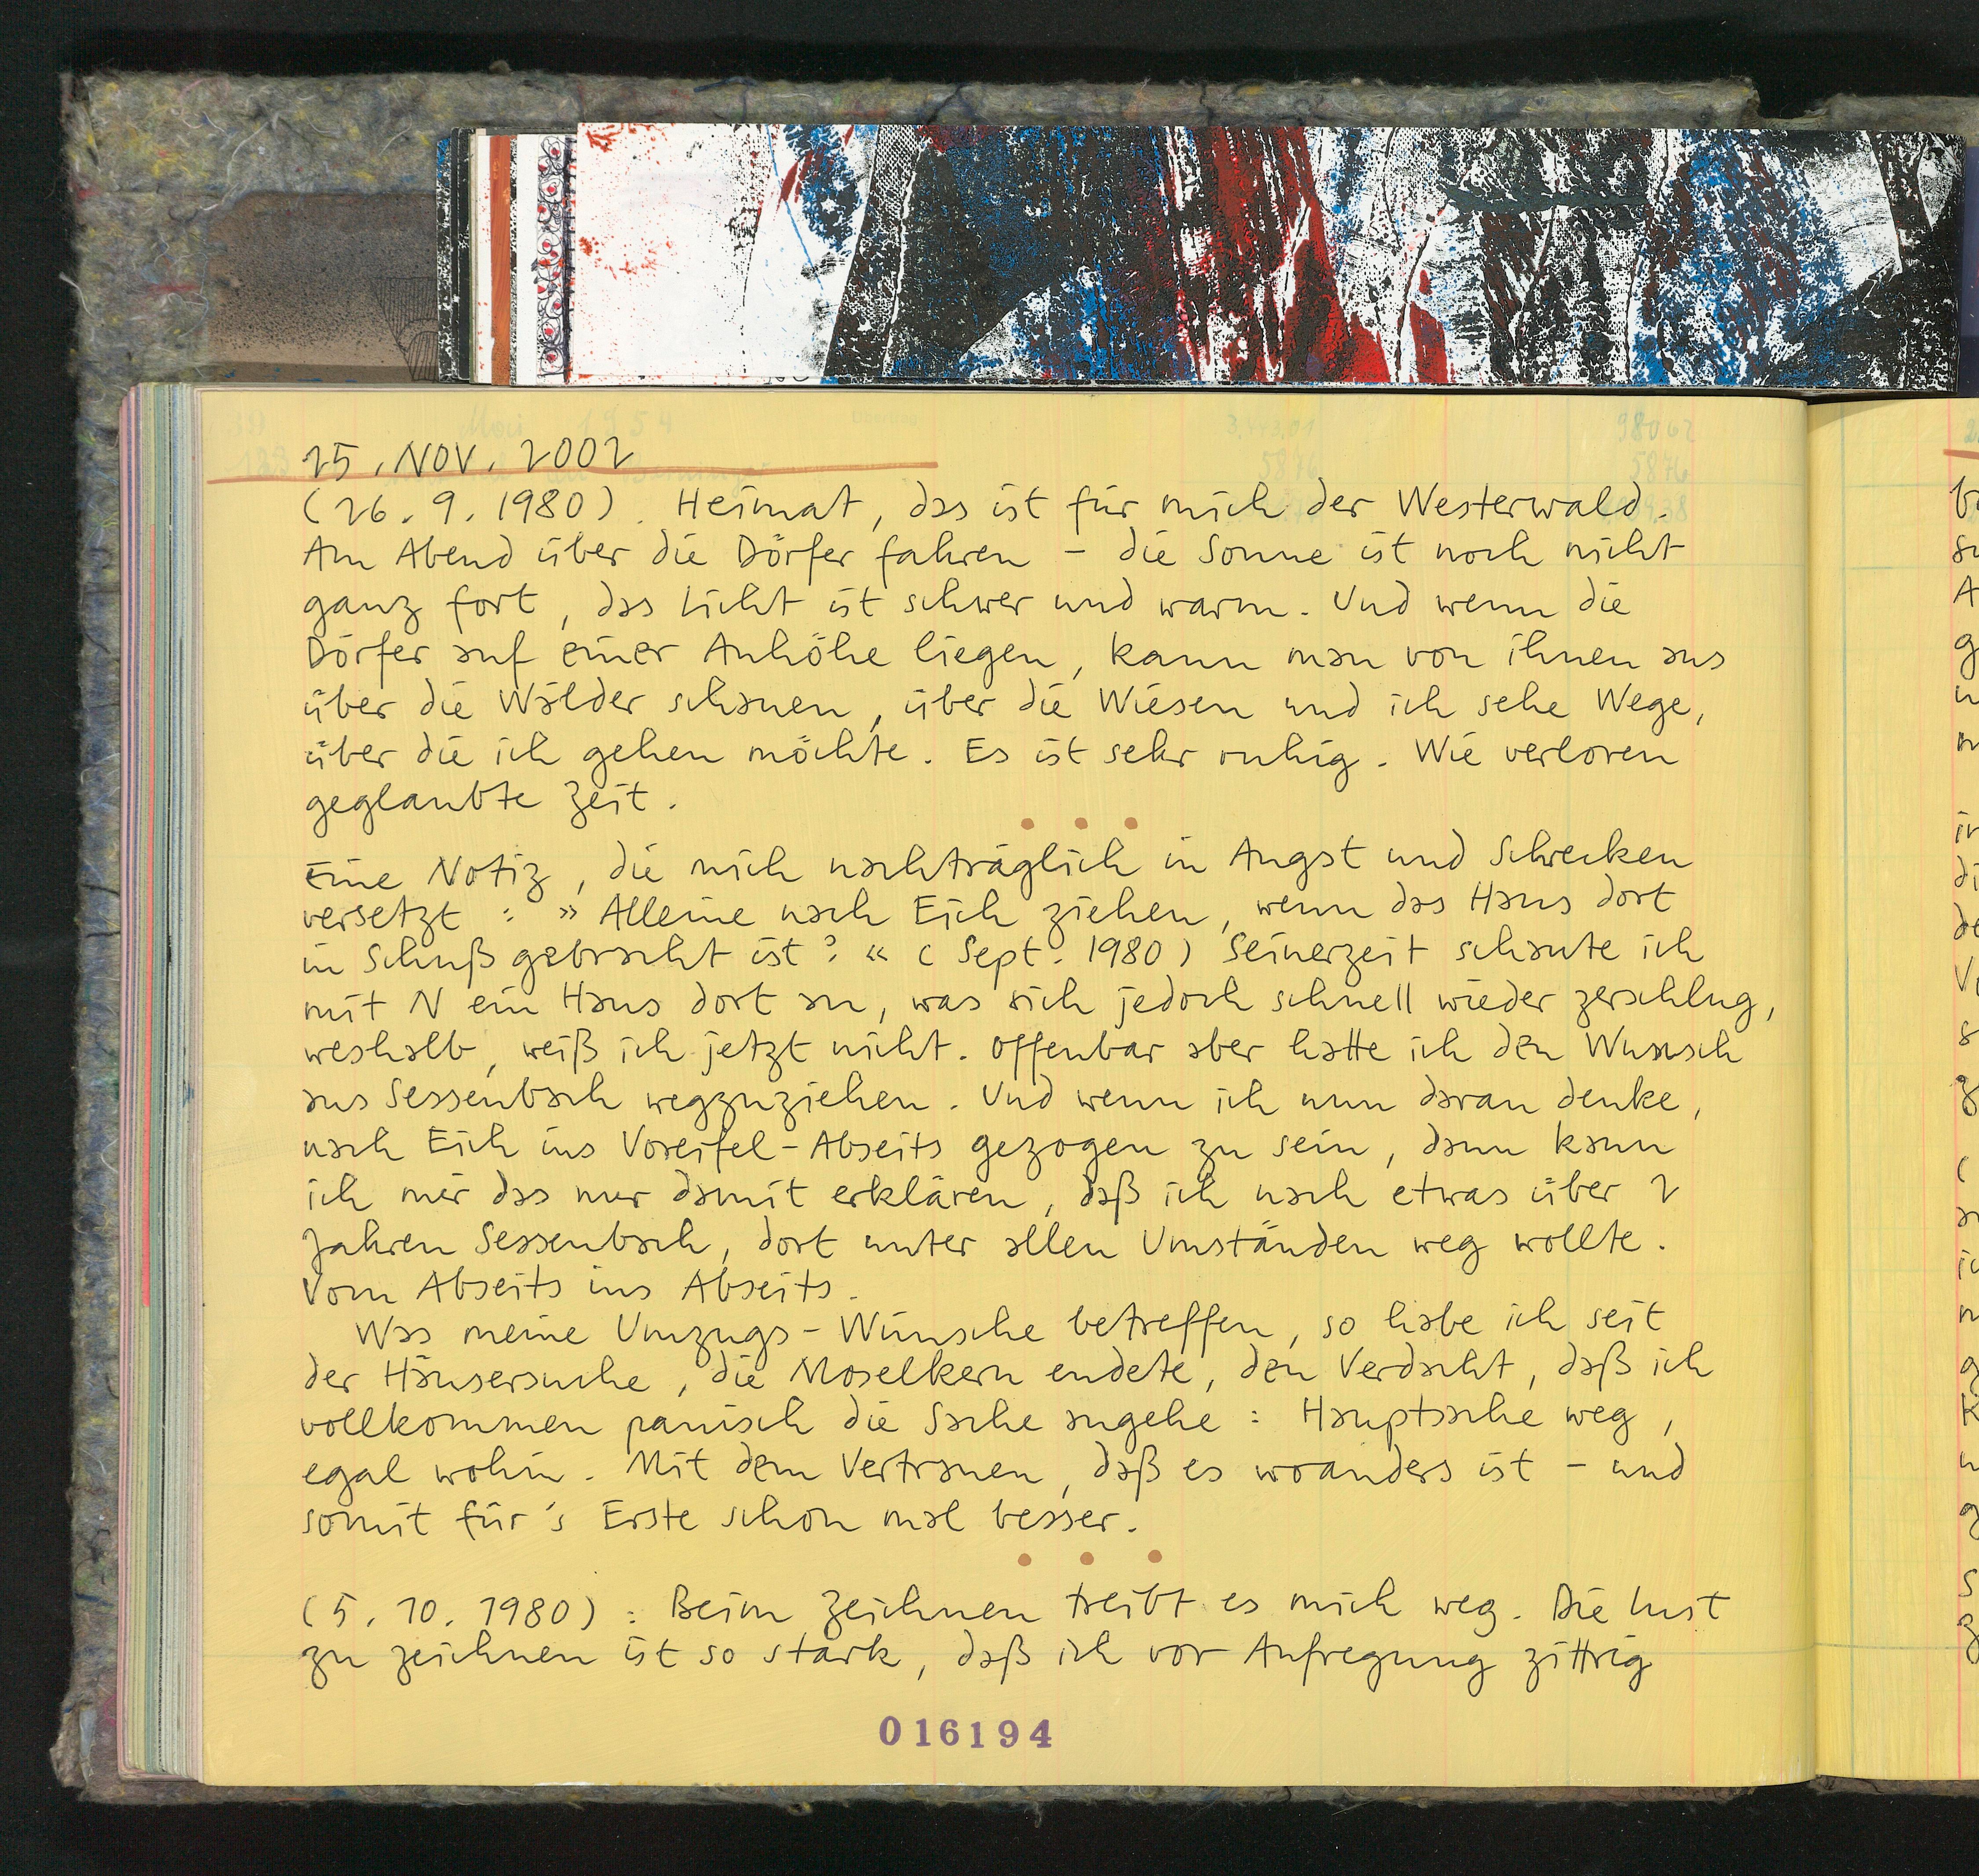 25. NOV. 2002
(26. 9. 1980). Heimat, das ist für mich der Westerwald.
Am Abend über die Dörfer fahren – die Sonne ist noch nicht
ganz fort, das Licht ist schwer und warm. Und wenn die
Dörfer auf einer Anhöhe liegen, kann man von ihnen aus
über die Wälder schauen, über die Wiesen und ich sehe Wege,
über die ich gehen möchte. Es ist sehr ruhig. Wie verloren
geglaubte Zeit.
• • •
Eine Notiz, die mich nachträglich in Angst und Schrecken
versetzt : » Alleine nach Eich ziehen, wenn das Haus dort
in Schuß gebracht ist? « (Sept. 1980) Seinerzeit schaute ich
mit N ein Haus dort an, was sich jedoch schnell wieder zerschlug,
weshalb, weiß ich jetzt nicht. Offenbar aber hatte ich den Wunsch
aus Sessenbach wegzuziehen. Und wenn ich nun daran denke,
nach Eich ins Voreifel-Abseits gezogen zu sein, dann kann
ich mir das nur damit erklären, daß ich nach etwas über 2
Jahren Sessenbach, dort unter allen Umständen weg wollte.
Vom Abseits ins Abseits.
Was meine Umzugs-Wünsche betreffen, so habe ich seit
der Häusersuche, die Moselkern endete, den Verdacht, daß ich
vollkommen panisch die Sache angehe : Hauptsache weg,
egal wohin. Mit dem Vertrauen, daß es woanders ist – und
somit für's Erste schon mal besser.
• • •
(5. 10. 1980) : Beim Zeichnen treibt es mich weg. Die Lust
zu zeichnen ist so stark, daß ich vor Aufregung zittrig
016194